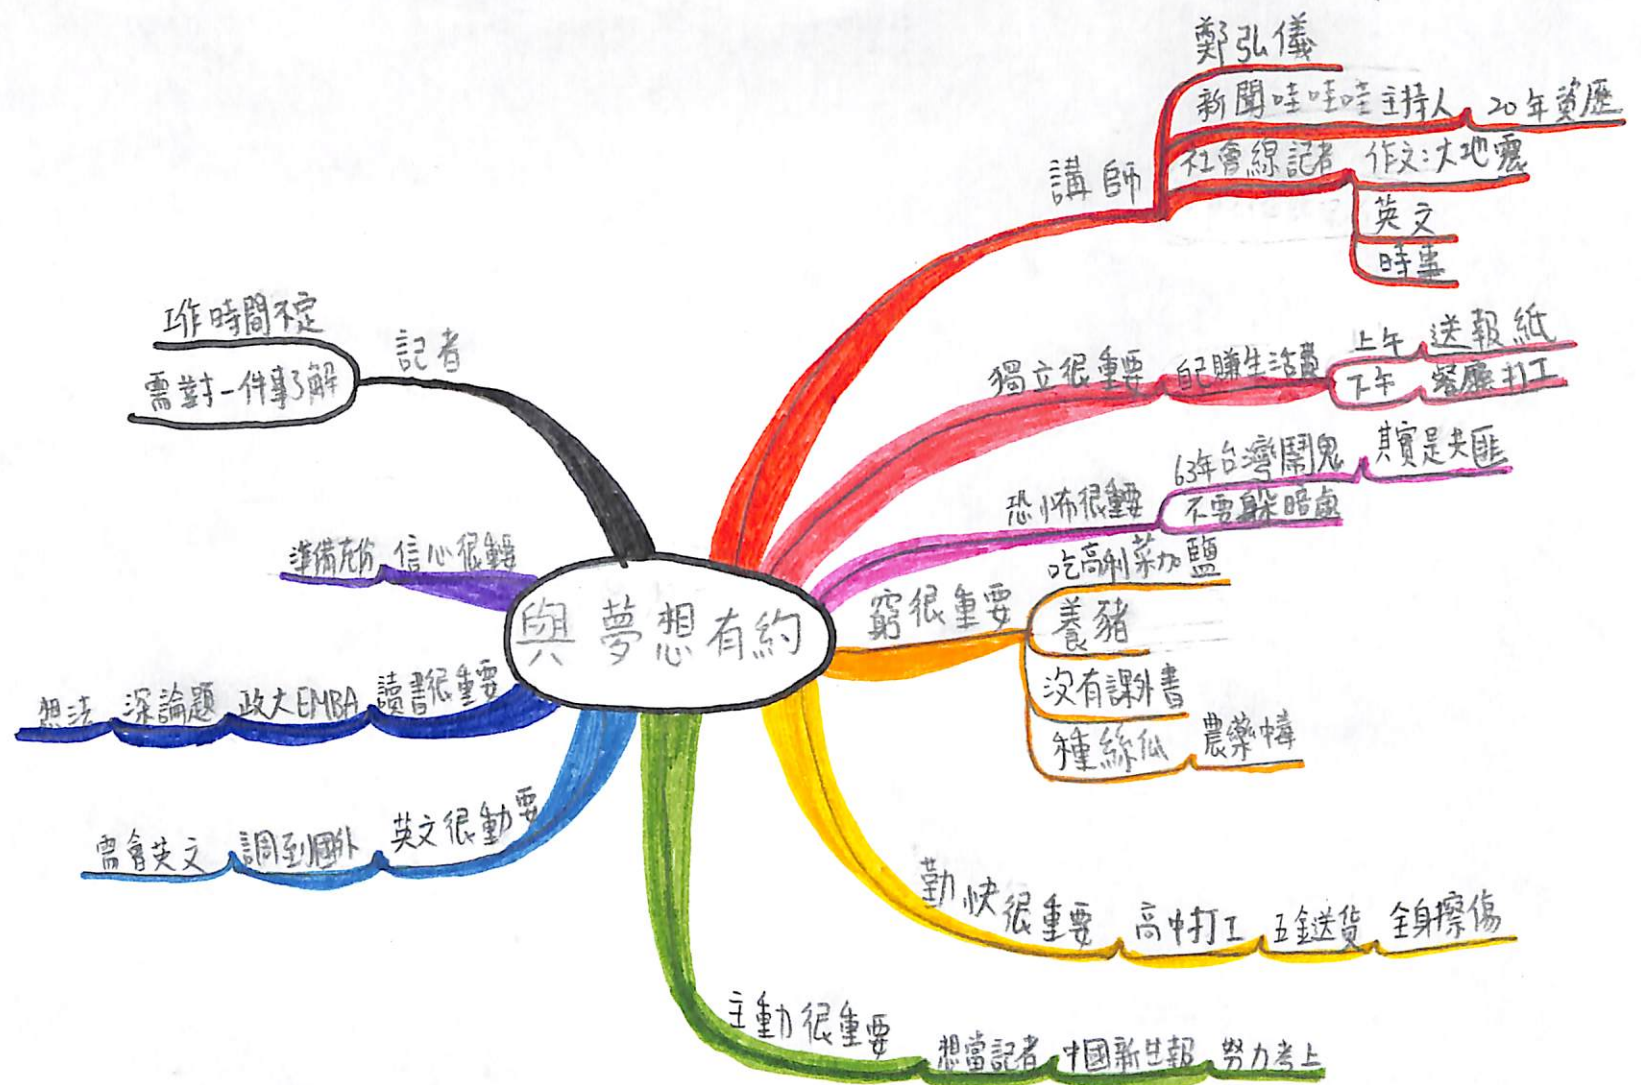 與夢想有約
講師
鄭弘儀
新聞哇哇哇主持人 20年資歷
社會線記者 作文:大地震
英文
時事
獨立很重要 自己賺生活費
上午 送報紙
下午 餐廳打工
恐怖很重要
63年台灣鬧鬼 其實是共匪
不要躲暗處
窮很重要
吃高利菜加鹽
養豬
沒有課外書
種絲瓜 農藥
勤快很重要 高中打工 五金送貨 全身擦傷
主動很重要 想當記者 中國新生報 努力考上
英文很動要 調到國外 需會英文
讀書很重要 政大EMBA 深論題 想法
信心很重要 準備充份
記者
工作時間不定
需對一件事了解